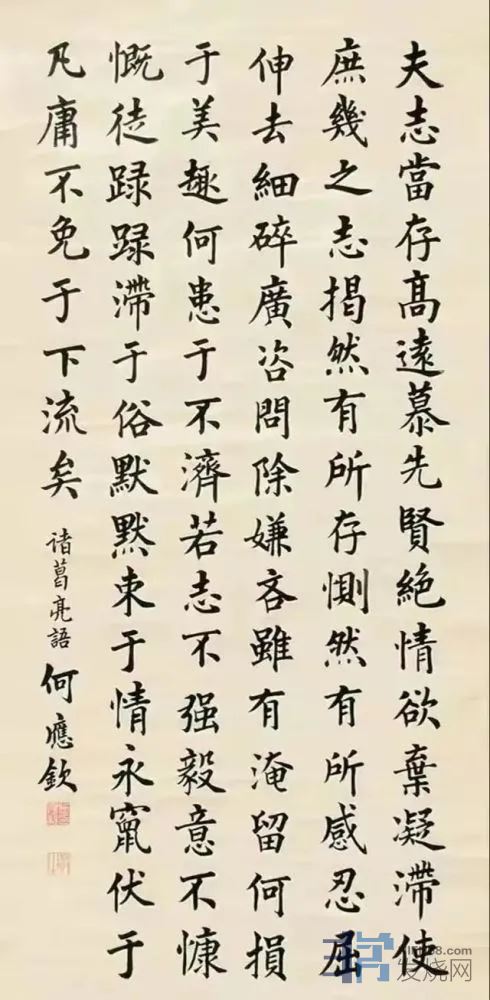 夫志當存髙遠慕先賢絶情欲棄凝滯使
庶幾之志揭然有所存惻然有所感忍屈
伸去細碎廣咨問除嫌吝雖有淹留何損
于美趣何患于不濟若志不强毅意不慷
慨徒踛踛滯于俗默默束于情永竄伏于
凡庸不免于下流矣
诸葛亮語
何應欽
发烧网